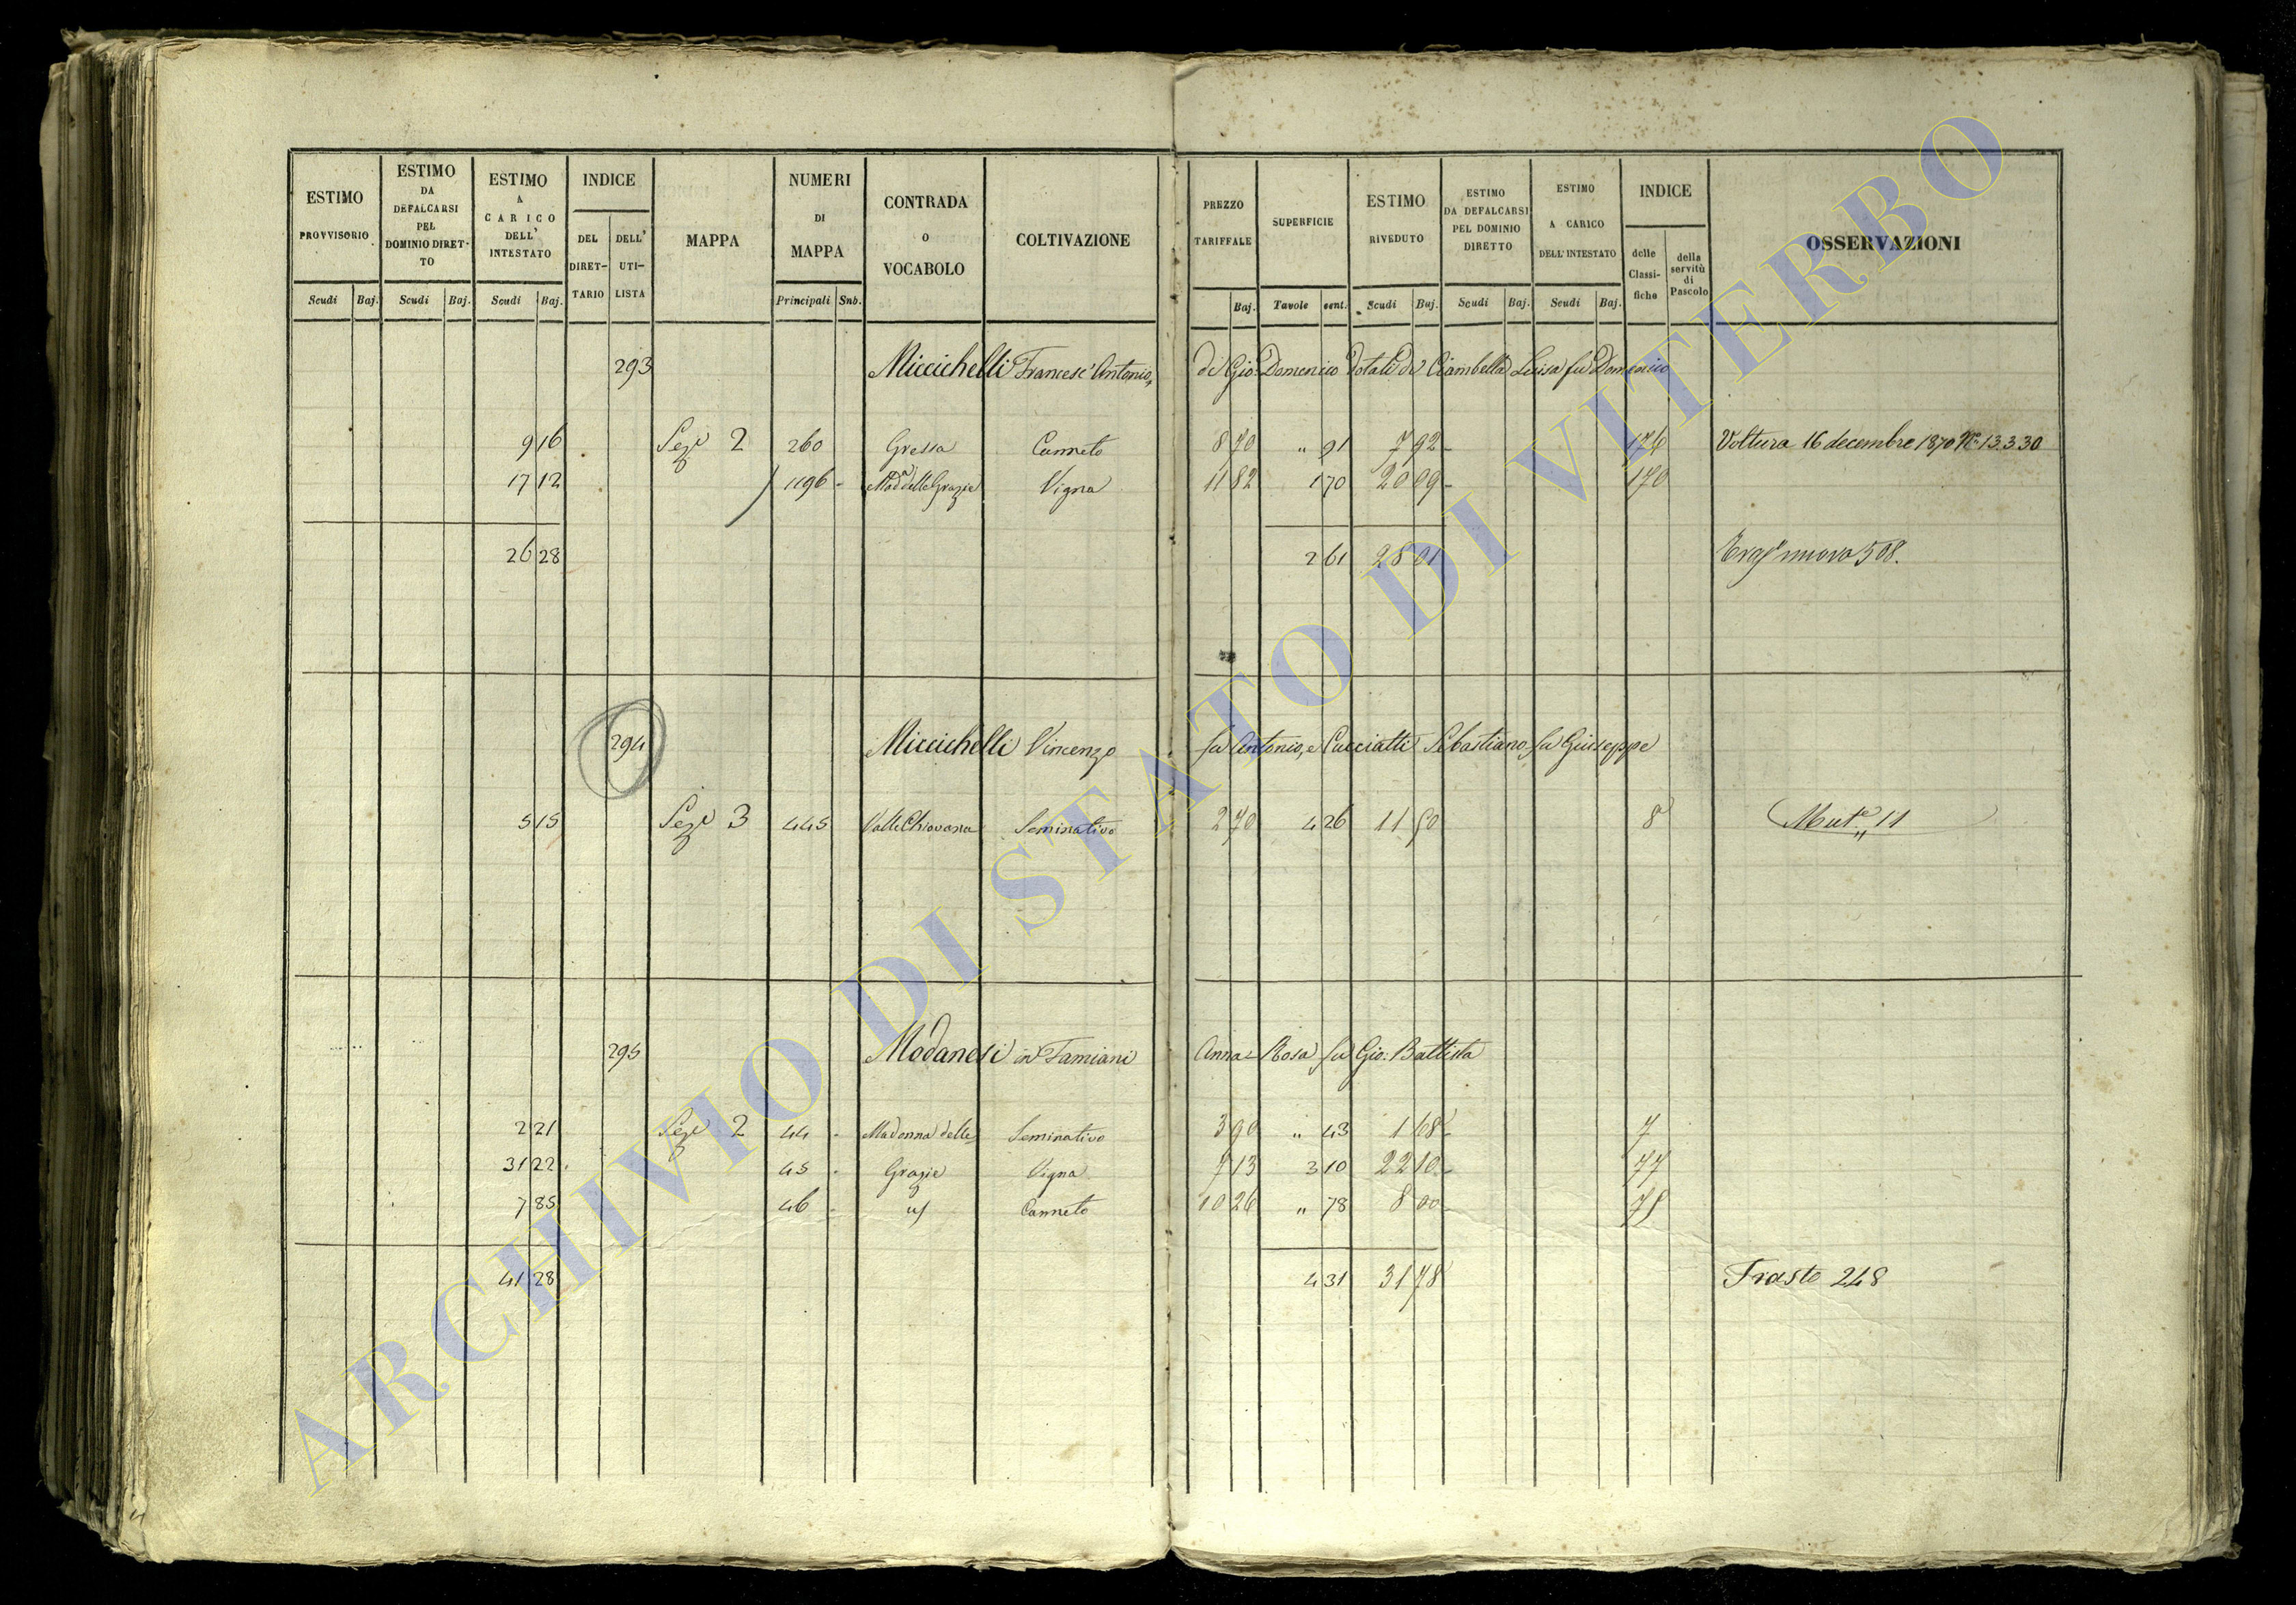 ESTIMO PROVVISORIO
Scudi Baj.
ESTIMO DA DEFALCARSI PEL DOMINIO DIRET-TO
Scudi Baj.
ESTIMO A CARICO DELL' INTESTATO
Scudi Baj.
INDICE
DEL DIRET-TARIO
DELL' UTI-LISTA
MAPPA
NUMERI DI MAPPA
Principali Snb.
CONTRADA O VOCABOLO
COLTIVAZIONE
PREZZO TARIFFALE
Baj.
SUPERFICIE
Tavole cent.
ESTIMO RIVEDUTO
Scudi Baj.
ESTIMO DA DEFALCARSI PEL DOMINIO DIRETTO
Scudi Baj.
ESTIMO A CARICO DELL'INTESTATO
Scudi Baj.
INDICE
delle Classi-fiche
della servitù di Pascolo
OSSERVAZIONI
293 Miccichelli Francesc' Antonio, di Gio: Domenico dotali di Ciambella Luisa fu Domenico
9 16 Seze 2 260 Gressa Canneto 8 70 " 91 7 92 176 Voltura 16 decembre 1870 N° 13330
17 12 1196 Mada delle Grazie Vigna 11 82 1 70 20 09 170
26 28 2 61 28 01 nuova 508.
294 Miccichelli Vincenzo fu Antonio, e Cucciatti Sebastiano fu Giuseppe
5 15 Seze 3 445 Valle Chiavana Seminativo 2 70 4 26 11 50 8 Mute 11
295 Modanesi in Tamiani Anna Rosa fu Gio: Battista
2 21 Seze 2 44 Madonna delle Seminativo 3 90 " 43 1 68 7
31 22 45 Grazie Vigna 7 13 3 10 22 10 77
7 85 46 Canneto 10 26 " 78 8 00 78
41 28 4 31 31 78 Trasto 248
ARCHIVIO DI STATO DI VITERBO